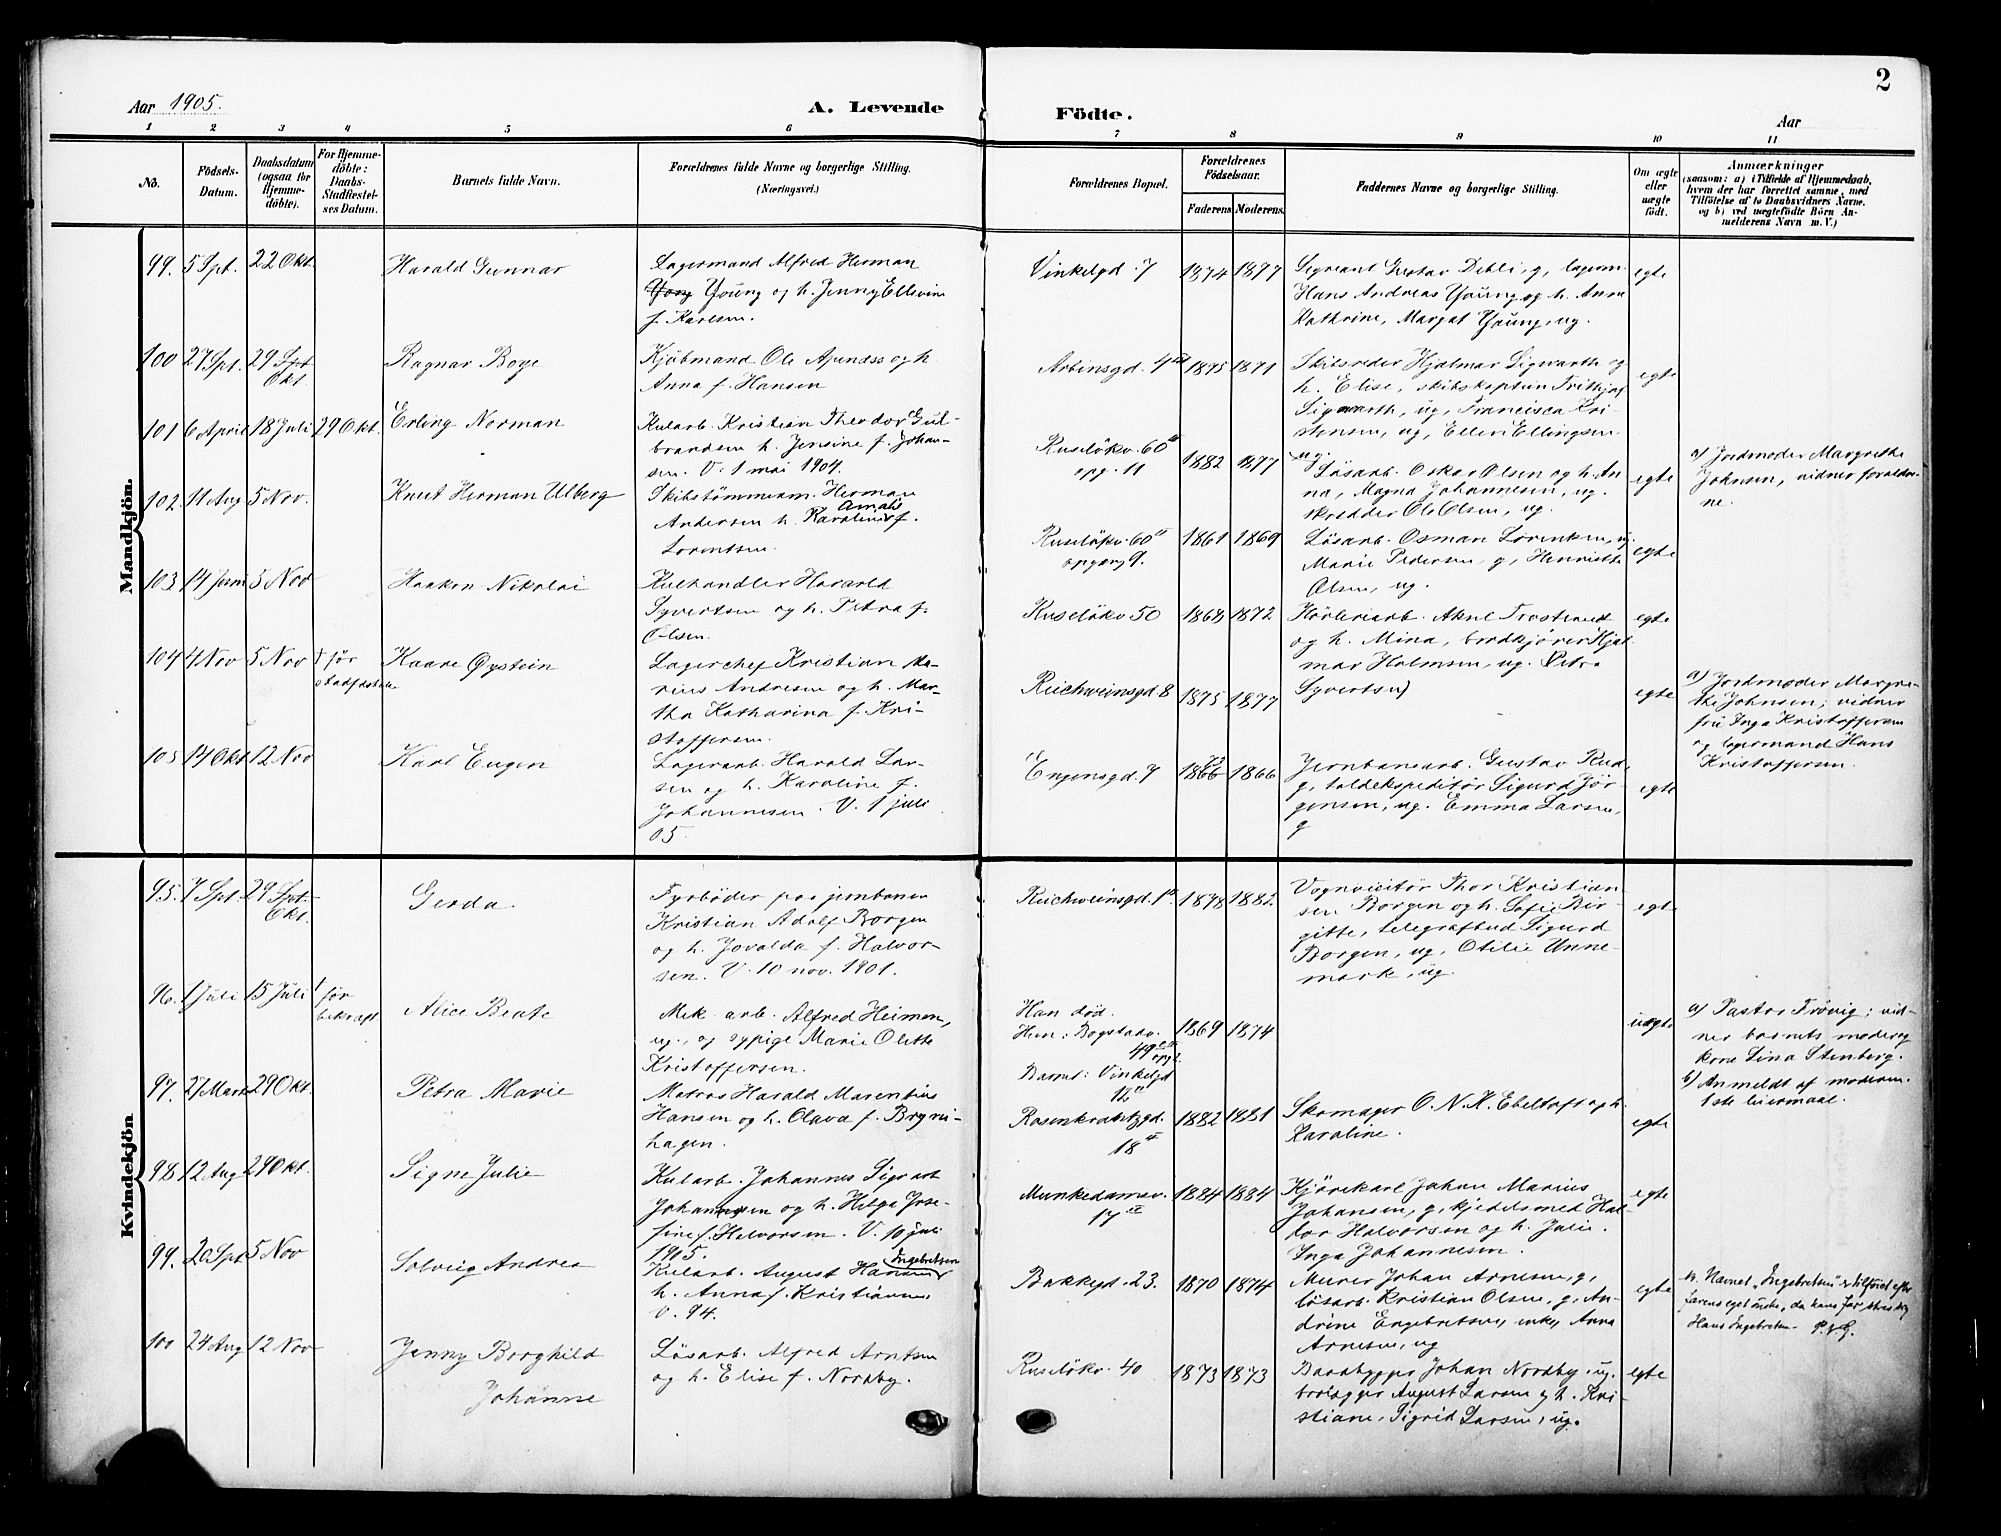 2
Aar 1905.
A. Levende Födte.
Aar
1 2 3 4 5 6 7 8 9 10 11
No.
Födsels-Datum.
Daabsdatum (ogsaa for Hjemme-döbte).
For Hjemme-döbte: Daabs-Stadfæstel-ses Datum.
Barnets fulde Navn.
Forældrenes fulde Navne og borgerlige Stilling. (Næringsvei.)
Forældrenes Bopæl.
Forældrenes Födselsaar.
Faderens. Moderens.
Faddernes Navne og borgerlige Stilling.
Om ægte eller uægte født.
Anmærkninger
(saasom: a) i Tilfælde af Hjemmedaab,
hvem der har forrettet samme, med
Tilföielse af to Daabsvidners Navne,
og b) ved uægtefödte Börn An-
melderens Navn m. V.)
Mandkjön.
99. 5 Spt. 22 Okt.
Harald Gunnar
Lagermand Alfred Herman
Yong Young og h. Jenny Ellevine
f. Karlsen.
Vinkelgd. 7
1874 1877
Sergeant Gustav Debli, g, lagerm.
Hans Andreas Young og h. Anna
Kathrine, Margat Young, ug.
egte
100 27 Spt. 29 Spt Okt.
Ragnar Boye
Kjöbmand Ole Ajundss og h
Anna f. Hansen
Arbinsgd. 4
1875 1871
Skibsreder Hjalmar Sigwarth og
h. Elise, skibskaptein Frithjof
Sigwarth, ug, Francisca Kri-
stensen, ug, Ellen Ellingsen
ug.
egte
101 6 April 18 Juli 29 Okt.
Erling Norman
Kularb. Kristian Theodor Gul-
brandsen h. Jensine f. Johan-
sen. V. 1 mai 1904.
Ruselökv. 60
opg. 11
1882 1877
Løsarb. Oskar Olsen og h. An-
na, Magna Johannesen, ug.
skredder Ole Olsen, ug.
egte
a) Jordmoder Margrethe
Johnsen, vidner foraldre-
ne.
102 11 Aug 5 Nov.
Knut Herman Ulberg
Skibstømmerm. Herman
Andersen h. Karoline Amalie f.
Lorentsen.
Ruselökv. 60
opgang 9.
1861 1869
Løsarb. Osman Lorentzen, ug.
Marie Pedersen, g, Henriette
Olsen, ug.
egte
103 14 Juni 5 Nov
Haakon Nikolai
Kulhandler Harald
Syvertsen og h. Petra f.
Olsen.
Ruselökv. 50
1868 1872
og h. Mina, brødkjører Hjal-
mar Holmsen, ug. Petra
Syvertsen
egte
104 4 Nov 5 Nov † før stadfæstelse
Kaare Øystein
Lagerchef Kristian Ma-
rius Andresen og h. Mar-
tha Katharina f. Kri-
stoffersen.
Reichweinsgd. 8
1875 1877
egte
a) Jordmoder Margre-
the Johnsen; vidner
fru Inga Kristoffersen
og lagermand Hans
Kristoffersen.
105 14 Okt 12 Nov
Karl Eugen
Lagerarb. Harald Lar-
sen og h. Karoline f.
Johannesen. V. 1 juli
05.
Engensgd. 7
1866 73 1866
Jernbanearb. Gustav Rud,
g, toldekspeditør Sigurd Jør-
gensen, ug. Emma Larsen,
g
egte
Kvindekjön
95. 7 Spt. 29 Spt. Okt.
Gerda.
Fyrbøder paa jernbanen
Kristian Adolf Borgen
og h. Jovalda f. Halvor-
sen. V. 10 nov. 1901.
Reichweinsgd. 1
1878 1882.
Vognvisitør Thor Kristian-
sen Borgen og h. Sofie Bir-
gitte, telegrafbud Sigurd
Borgen, ug, Otilie Unne-
mark, ug.
egte
96. 1 Juli 15 Juli † før bekræft
Alice Beate
Mek. arb. Alfred Heimen,
ug. og sypige Marie Olette
Kristoffersen.
Han död.
Hun: Bogstadv.
49 opg. 2
Barnet: Vinkelgd
12
1869 1874
uegte
a) Pastor Frövig; vid-
ner barnets moder og
kone Lina Stenberg.
b) Anmeldt af moderen.
1ste leiermaal.
97. 27 Marts 29 Okt.
Petra Marie
Matros Harald Marentius
Hansen og h. Olava f. Bryni-
hagen.
Rosenkrantzgd.
18
1882 1881
Skomager O. N. K. Ebeltoft og h.
Karoline.
egte
98 12 Aug 29 Okt.
Signe Julie
Kularb. Johannes Sigvart
Johannesen og h. Helga Jose-
fine f. Halvorsen. V. 10 juli
1905.
Munkedamsv.
17
1884 1884
Kjørekarl Johan Marius
Johansen, g, kjedelsmed Hal-
vor Halvorsen og h. Julie.
Inga Johannesen.
egte
99. 20 Spt 5 Nov
Solveig Andrea
Kularb. August Hansen Ingebretsen
h. Anna f. Kristiansen.
V. 94.
Bakkegd. 23.
1870 1874
Murer Johan Arnesen, g,
løsarb. Kristian Olsen, g, An-
drine Engebretsen, enke, Anna
Arnesen, ug
egte
Navnet "Ingebretsen" er tilföiet efter
farens eget önske, da hans far
Hans Ingebretsen.
100 24 Aug 12 Nov
Jenny Borghild
Johanne
Løsarb. Alfred Arntsen
og h. Elise f. Nordby.
Ruselökv. 40
1873 1873
Barebygger Johan Nordby, ug.
August Larsen og h. Kri-
stiane, Sigrid Larsen, ug.
egte